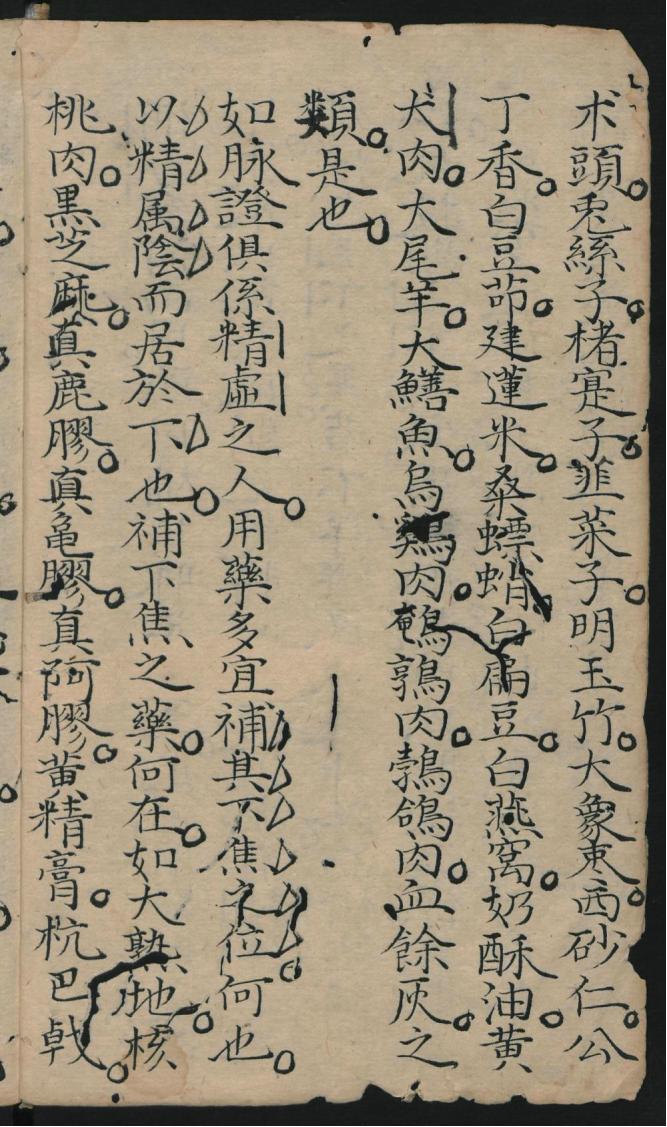 朮頭兎絲子楮寔子韮菜子明玉竹大象枣西砂仁公
丁香白豆茆建蓮米桑螵蛸白扁豆白燕窩奶酥油黄
犬肉大尾羊大鱔魚烏鷄肉鵪鶉肉鵓鴿肉血餘灰之
類是也
如脉證俱係精虛之人用藥多宜補其下焦之位何也
以精属陰而居於下也補下焦之藥何在如大熟地核
桃肉黒芝麻真鹿膠真亀膠真阿膠黄精膏杭巴戟